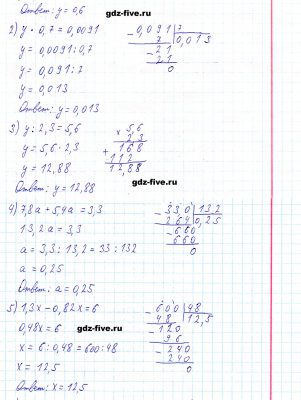 Ответ: y = 0,6
gdz-five.ru
2) y · 0,7 = 0,0091
y = 0,0091 : 0,7
y = 0,091 : 7
y = 0,013
Ответ: y = 0,013
0,091 | 7
7 | 0,013
21
21
0
3) y : 2,3 = 5,6
y = 5,6 · 2,3
y = 12,88
Ответ: y = 12,88
× 5,6
2,3
+ 168
112
12,88
gdz-five.ru
4) 7,8a + 5,4a = 3,3
13,2a = 3,3
a = 3,3 : 13,2 = 33 : 132
a = 0,25
Ответ: a = 0,25
330 | 132
264 | 0,25
660
660
0
gdz-five.ru
5) 1,3x – 0,82x = 6
0,48x = 6
x = 6 : 0,48 = 600 : 48
x = 12,5
Ответ: x = 12,5
600 | 48
48 | 12,5
120
96
240
240
0
gdz-five.ru